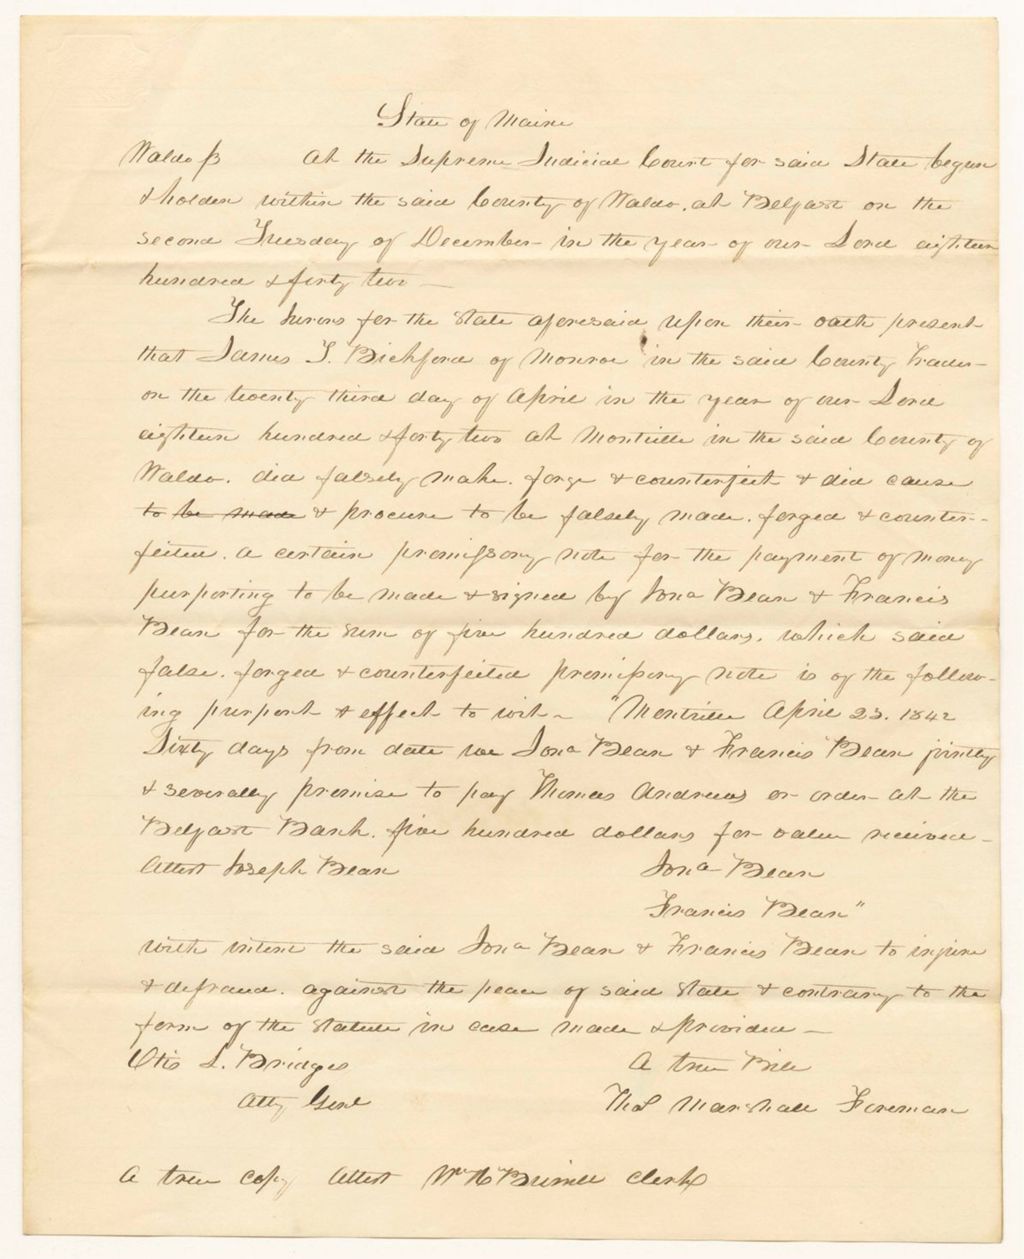 State of Maine
Waldo ss At the Supreme Judicial Court for said State begun
& holden within the said County of Waldo, at Belfast on the
second Tuesday of December in the year of our Lord eighteen
hundred & forty two —
The Jurors for the State aforesaid upon their oath present
that James T. Bickford of Monroe in the said County Trader
on the twenty third day of April in the year of our Lord
eighteen hundred & forty two at Montville in the said County of
Waldo, did falsely make, forge & counterfeit & did cause
to be made & procure to be falsely made, forged & counter-
feited, a certain promissory note for the payment of money
purporting to be made & signed by Jona Bean & Francis
Bean for the sum of five hundred dollars, which said
false, forged & counterfeited promissory note is of the follow-
ing purport & effect to wit - "Montville April 23. 1842
Sixty days from date we Jona Bean & Francis Bean jointly
& severally promise to pay Thomas Andrews or order at the
Belfast Bank, five hundred dollars for value received -
Attest Joseph Bean Jona Bean
Francis Bean"
with intent the said Jona Bean & Francis Bean to injure
& defraud, against the peace of said State & contrary to the
form of the Statute in case made & provided —
Otis L. Bridges A true Bill
Atty Genl Thos Marshall Foreman
A true copy Attest Wm H Burrill Clerk